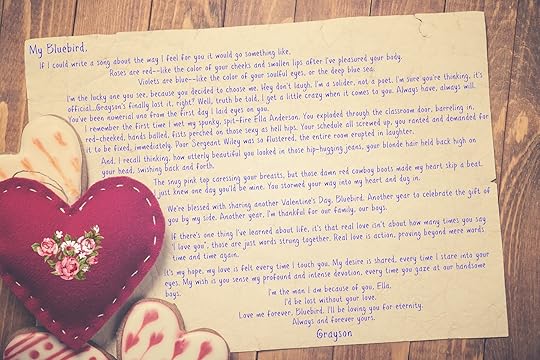 My Bluebird,
If I could write a song about the way I feel for you it would go something like,
Roses are red--like the color of your cheeks and swollen lips after I've pleasured your body.
Violets are blue--like the color of your soulful eyes, or the deep blue sea.
I'm the lucky one you see, because you decided to choose me. Hey don't laugh, I'm a solider, not a poet. I'm sure you're thinking, it's
official...Grayson's finally lost it, right? Well, truth be told, I get a little crazy when it comes to you. Always have, always will.
You've been numeral uno from the first day I laid eyes on you.
I remember the first time I met my spunky, spit-fire Ella Anderson. You exploded through the classroom door, barreling in,
red-cheeked, hands balled, fists perched on those sexy as hell hips. Your schedule all screwed up, you ranted and demanded for
it to be fixed, immediately. Poor Sergeant Wiley was so flustered, the entire room erupted in laughter.
And, I recall thinking, how utterly beautiful you looked in those hip-hugging jeans, your blonde hair held back high on
your head, swishing back and forth.
The snug pink top caressing your breasts, but those damn red cowboy boots made my heart skip a beat.
I just knew one day you'd be mine. You stormed your way into my heart and dug in.
We're blessed with sharing another Valentine's Day, Bluebird. Another year to celebrate the gift of
you by my side. Another year, I'm thankful for our family, our boys.
If there's one thing I've learned about life, it's that real love isn't about how many times you say
"I love you", those are just words strung together. Real love is action, proving beyond mere words,
time and time again.
It's my hope, my love is felt every time I touch you. My desire is shared, every time I stare into your
eyes. My wish is you sense my profound and intense devotion, every time you gaze at our handsome
boys.
I'm the man I am because of you, Ella.
I'd be lost without your love.
Love me forever, Bluebird. I'll be loving you for eternity.
Always and forever yours,
Grayson